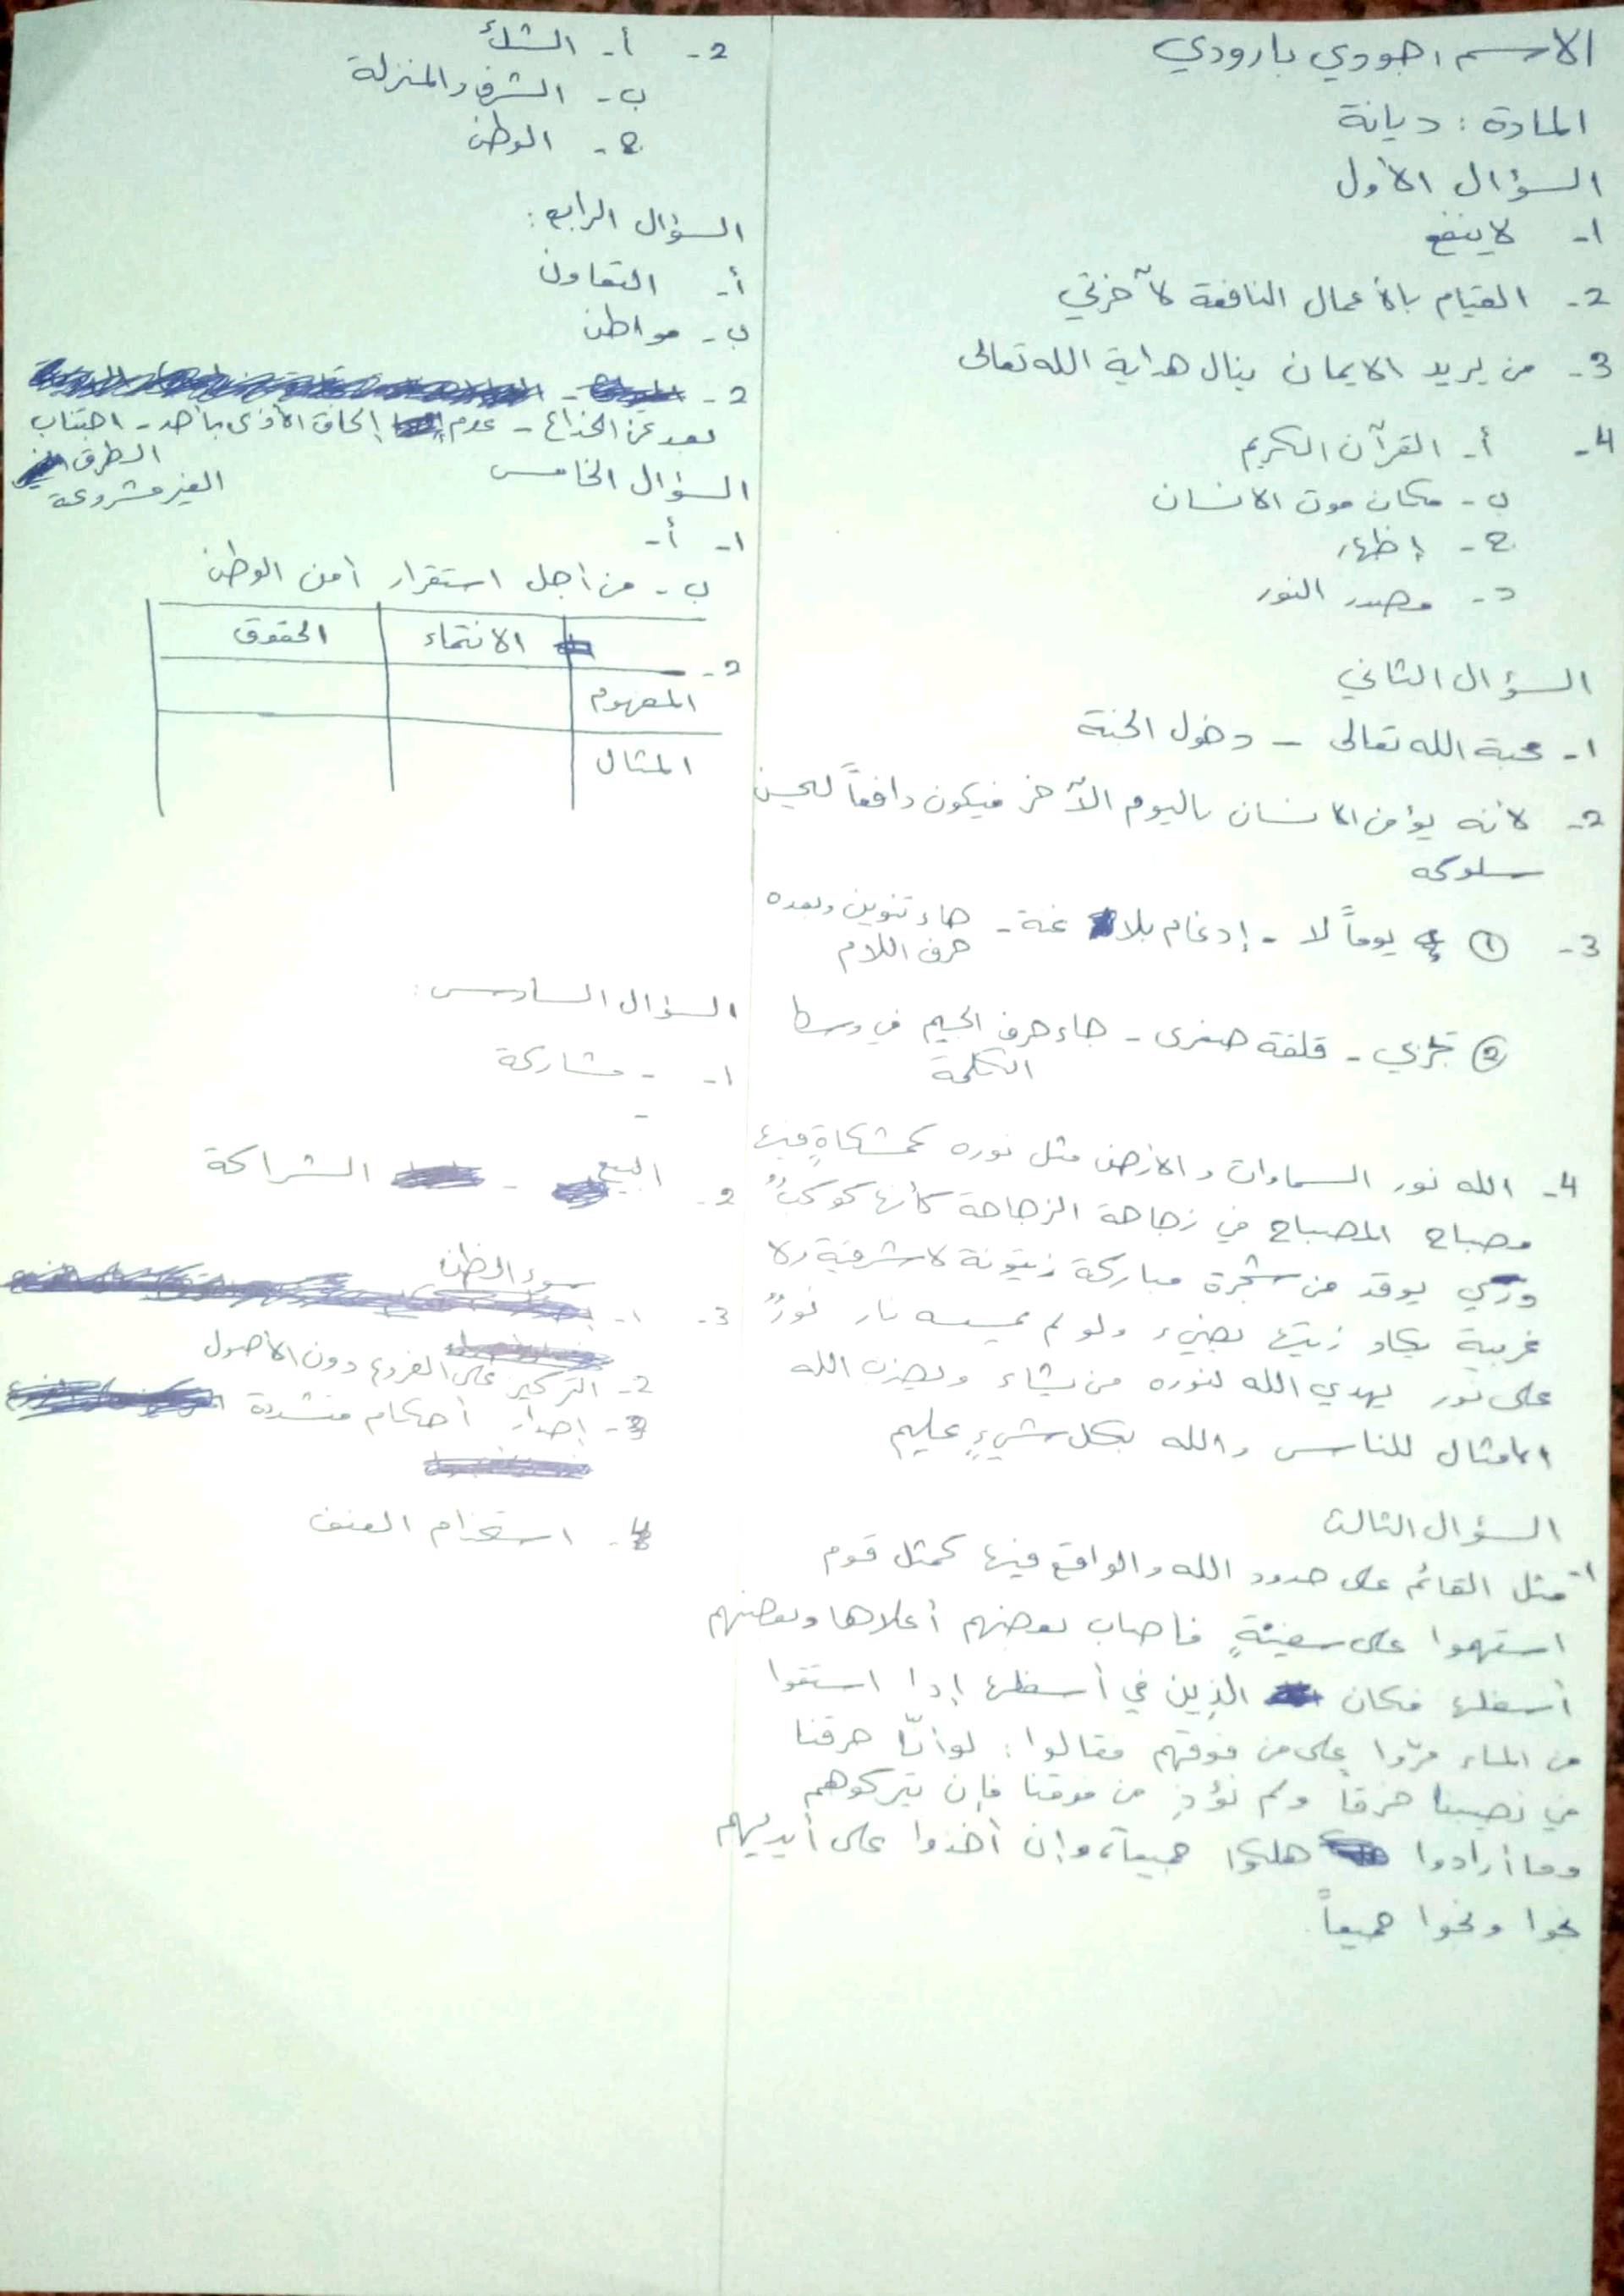 الاسم: جودي بارودي
المادة: ديانة
السؤال الأول
1- لا ينفع
2- القيام بالأعمال النافعة لآخرتي
3- من يريد الايمان ينال هداية الله تعالى
4- أ- القرآن الكريم
ب- مكان موت الانسان
ج- إظهار
د- مصدر النور
السؤال الثاني
1- محبة الله تعالى - دخول الجنة
2- لأنه يؤمن الانسان باليوم الآخر فيكون دافعاً لحسن
سلوكه
3- ① يوماً لا - إدغام بلا غنة - جاء تنوين وبعده
حرف اللام
② تجزي - قلقة صغرى - جاء حرف الجيم في وسط
الكلمة
4- الله نور السماوات والارض مثل نوره كمشكاةٍ فيها
مصباح المصباح في زجاجة الزجاجة كأنها كوكبٌ
دري يوقد من شجرة مباركة زيتونة لا شرقية ولا
غربية يكاد زيتها يضيء ولو لم تمسسه نار نورٌ
على نور يهدي الله لنوره من يشاء ويضرب الله
الامثال للناس والله بكل شيءٍ عليم
السؤال الثالث
1- مثل القائم على حدود الله والواقع فيها كمثل قوم
استهموا على سفينةٍ فأصاب بعضهم أعلاها وبعضهم
أسفلها فكان الذين في أسفلها إذا استقوا
من الماء مرّوا على من فوقهم فقالوا: لو أنّا خرقنا
في نصيبنا خرقاً ولم نؤذِ من فوقنا فإن يتركوهم
وما أرادوا هلكوا جميعاً، وإن أخذوا على أيديهم
نجوا ونجوا جميعاً.
2- أ- الشك
ب- الشرف والمنزلة
ج- الوطن
السؤال الرابع:
أ- التعاون
ب- مواطن
2-
بعد عن الخداع - عدم إلحاق الأذى بأحد - اجتناب
الطرق
الغير مشروعة
السؤال الخامس
1- أ-
ب- من أجل استقرار أمن الوطن
2-
الانتماء الحقوق
المفهوم
المثال
السؤال السادس:
1- - مشاركة
-
2- البيع - الشراكة
3- 1- سوء الظن
2- التركيز على الفروع دون الأصول
3- إصدار أحكام متشددة
4- استخدام العنف